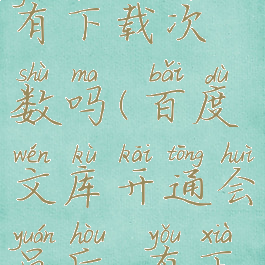 有下载次
shù ma bǎi dù
数吗(百度
wén kù kāi tōng huì
文库开通会
yuán hòu yǒu xià